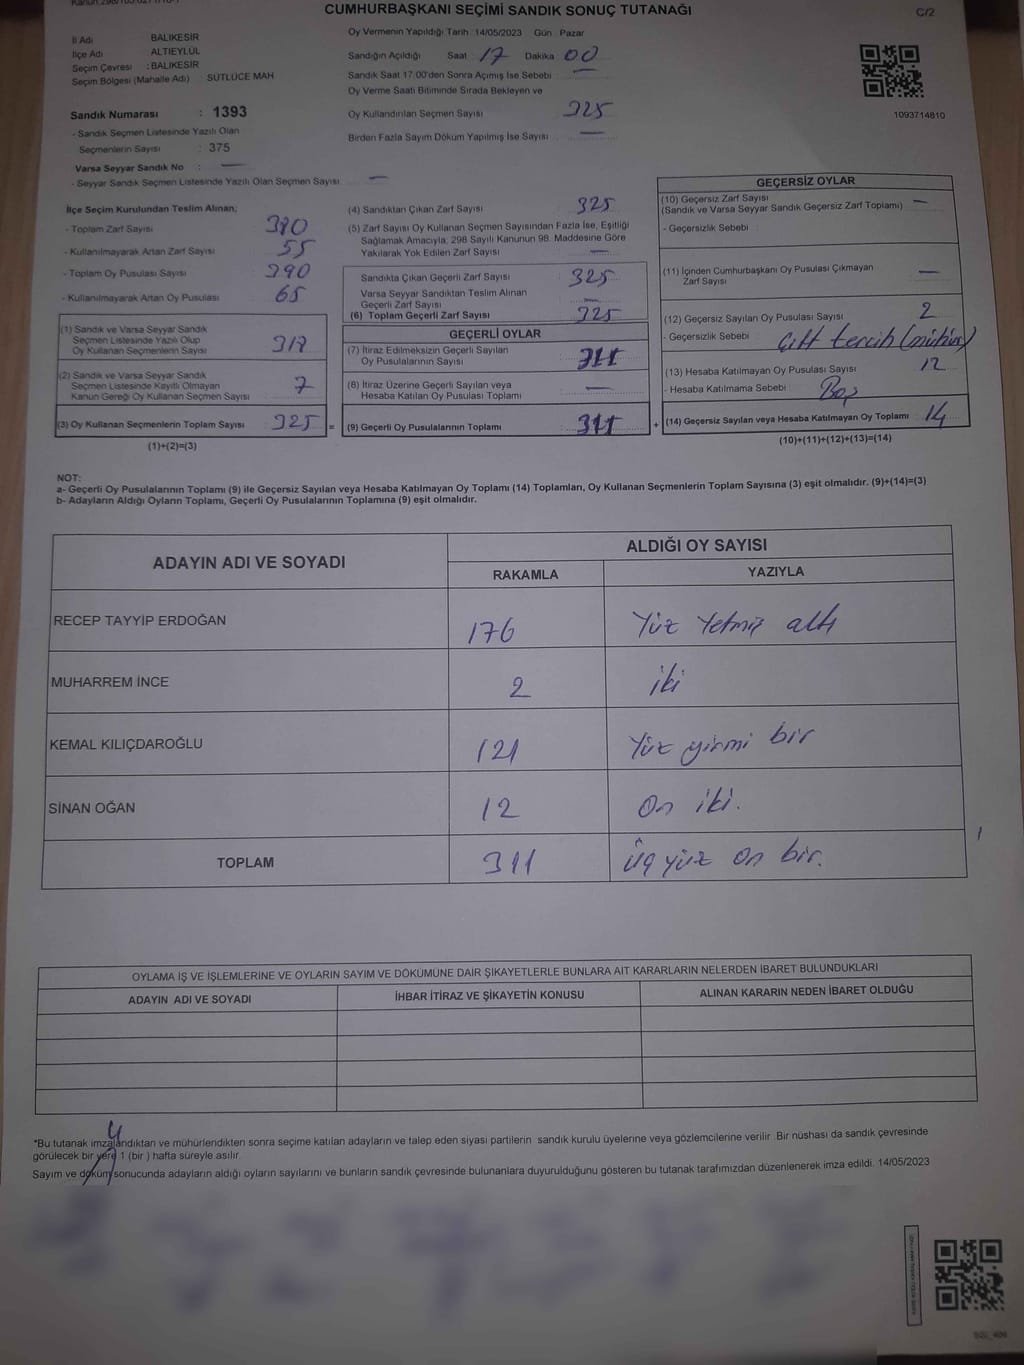 CUMHURBAŞKANI SEÇİMİ SANDIK SONUÇ TUTANAĞI
C/2
İl Adı BALIKESİR
İlçe Adı ALTIEYLÜL
Seçim Çevresi : BALIKESİR
Seçim Bölgesi (Mahalle Adı) SÜTLÜCE MAH
Sandık Numarası : 1393
- Sandık Seçmen Listesinde Yazılı Olan
Seçmenlerin Sayısı : 375
Varsa Seyyar Sandık No : —
- Seyyar Sandık Seçmen Listesinde Yazılı Olan Seçmen Sayısı —
Oy Vermenin Yapıldığı Tarih : 14/05/2023 Gün : Pazar
Sandığın Açıldığı Saat : 17 Dakika 00
Sandık Saat 17:00'den Sonra Açımış İse Sebebi : —
Oy Verme Saati Bitiminde Sırada Bekleyen ve
Oy Kullandırılan Seçmen Sayısı 325
Birden Fazla Sayım Döküm Yapılmış İse Sayısı —
1093714810
İlçe Seçim Kurulundan Teslim Alınan;
- Toplam Zarf Sayısı 380
- Kullanılmayarak Artan Zarf Sayısı 55
- Toplam Oy Pusulası Sayısı 390
- Kullanılmayarak Artan Oy Pusulası 65
(1) Sandık ve Varsa Seyyar Sandık
Seçmen Listesinde Yazılı Olup
Oy Kullanan Seçmenlerin Sayısı 318
(2) Sandık ve Varsa Seyyar Sandık
Seçmen Listesinde Kayıtlı Olmayan
Kanun Gereği Oy Kullanan Seçmen Sayısı 7
(3) Oy Kullanan Seçmenlerin Toplam Sayısı 325 =
(1)+(2)=(3)
(4) Sandıktan Çıkan Zarf Sayısı 325
(5) Zarf Sayısı Oy Kullanan Seçmen Sayısından Fazla İse, Eşitliği
Sağlamak Amacıyla, 298 Sayılı Kanunun 98. Maddesine Göre
Yakılarak Yok Edilen Zarf Sayısı —
Sandıkta Çıkan Geçerli Zarf Sayısı 325
Varsa Seyyar Sandıktan Teslim Alınan
Geçerli Zarf Sayısı —
(6) Toplam Geçerli Zarf Sayısı 325
GEÇERLİ OYLAR
(7) İtiraz Edilmeksizin Geçerli Sayılan
Oy Pusulalarının Sayısı 311
(8) İtiraz Üzerine Geçerli Sayılan veya
Hesaba Katılan Oy Pusulası Toplamı —
(9) Geçerli Oy Pusulalarının Toplamı 311 +
GEÇERSİZ OYLAR
(10) Geçersiz Zarf Sayısı —
(Sandık ve Varsa Seyyar Sandık Geçersiz Zarf Toplamı)
- Geçersizlik Sebebi :
(11) İçinden Cumhurbaşkanı Oy Pusulası Çıkmayan
Zarf Sayısı —
(12) Geçersiz Sayılan Oy Pusulası Sayısı 2
- Geçersizlik Sebebi : Çift tercih (mühür)
(13) Hesaba Katılmayan Oy Pusulası Sayısı 12
- Hesaba Katılmama Sebebi : Boş
(14) Geçersiz Sayılan veya Hesaba Katılmayan Oy Toplamı 14
(10)+(11)+(12)+(13)=(14)
NOT:
a- Geçerli Oy Pusulalarının Toplamı (9) ile Geçersiz Sayılan veya Hesaba Katılmayan Oy Toplamı (14) Toplamları, Oy Kullanan Seçmenlerin Toplam Sayısına (3) eşit olmalıdır. (9)+(14)=(3)
b- Adayların Aldığı Oyların Toplamı, Geçerli Oy Pusulalarının Toplamına (9) eşit olmalıdır.
ADAYIN ADI VE SOYADI
ALDIĞI OY SAYISI
RAKAMLA YAZIYLA
RECEP TAYYİP ERDOĞAN 176 Yüz Yetmiş altı
MUHARREM İNCE 2 iki
KEMAL KILIÇDAROĞLU 121 Yüz yirmi bir
SİNAN OĞAN 12 On iki.
TOPLAM 311 üç yüz on bir.
OYLAMA İŞ VE İŞLEMLERİNE VE OYLARIN SAYIM VE DÖKÜMÜNE DAİR ŞİKAYETLERLE BUNLARA AİT KARARLARIN NELERDEN İBARET BULUNDUKLARI
ADAYIN ADI VE SOYADI İHBAR İTİRAZ VE ŞİKAYETİN KONUSU ALINAN KARARIN NEDEN İBARET OLDUĞU
*Bu tutanak imzalandıktan ve mühürlendikten sonra seçime katılan adayların ve talep eden siyasi partilerin sandık kurulu üyelerine veya gözlemcilerine verilir. Bir nüshası da sandık çevresinde
görülecek bir yere 1 (bir ) hafta süreyle asılır.
Sayım ve döküm sonucunda adayların aldığı oyların sayılarını ve bunların sandık çevresinde bulunanlara duyurulduğunu gösteren bu tutanak tarafımızdan düzenlenerek imza edildi. 14/05/2023